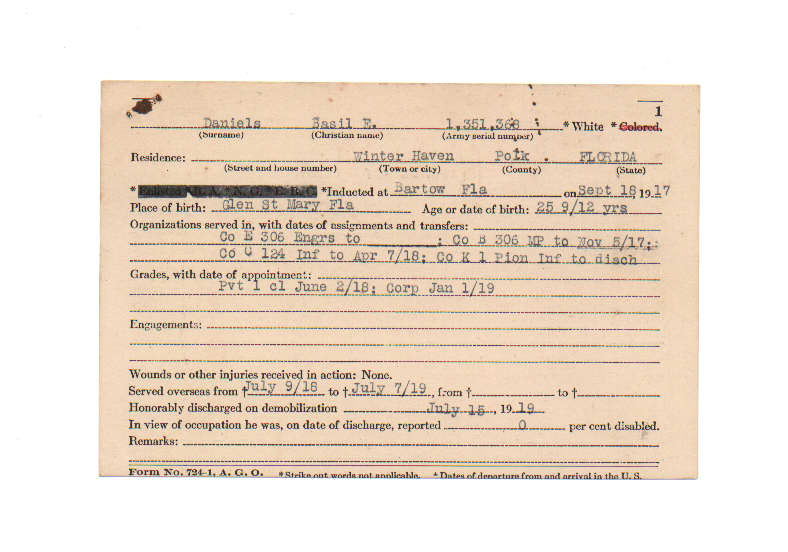 1
Daniels Basil E. 1,351,368 * White * Colored.
(Surname) (Christian name) (Army serial number)
Residence: Winter Haven Polk . FLORIDA
(Street and house number) (Town or city) (County) (State)
* *Inducted at Bartow Fla on Sept 18 1917
Place of birth: Glen St Mary Fla Age or date of birth: 25 9/12 yrs
Organizations served in, with dates of assignments and transfers:
Co E 306 Engrs to ; Co B 306 MP to Nov 5/17;
Co C 124 Inf to Apr 7/18; Co K 1 Pion Inf to disch
Grades, with date of appointment:
Pvt 1 cl June 2/18; Corp Jan 1/19
Engagements:
Wounds or other injuries received in action: None.
Served overseas from † July 9/18 to † July 7/19, from † to †
Honorably discharged on demobilization July 15, 1919
In view of occupation he was, on date of discharge, reported 0 per cent disabled.
Remarks:
Form No. 724-1, A. G. O. *Strike out words not applicable. † Dates of departure from and arrival in the U. S.